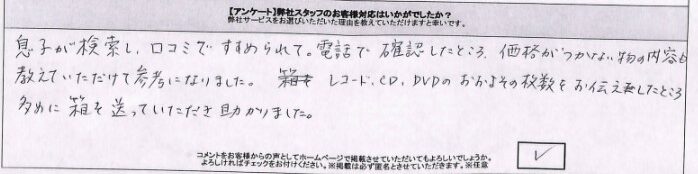 【アンケート】弊社スタッフのお客様対応はいかがでしたか?
弊社サービスをお選びいただいた理由を教えていただけますと幸いです。
息子が検索し、口コミですすめられて。電話で確認したところ、価格がつかない物の内容も
教えていただけて参考になりました。レコード、CD、DVDのおおよその枚数をお伝えしたところ
多めに箱を送っていただき助かりました。
コメントをお客様からの声としてホームページで掲載させていただいてもよろしいでしょうか。
よろしければチェックをお付けください。※掲載は必ず匿名とさせていただきます。※任意